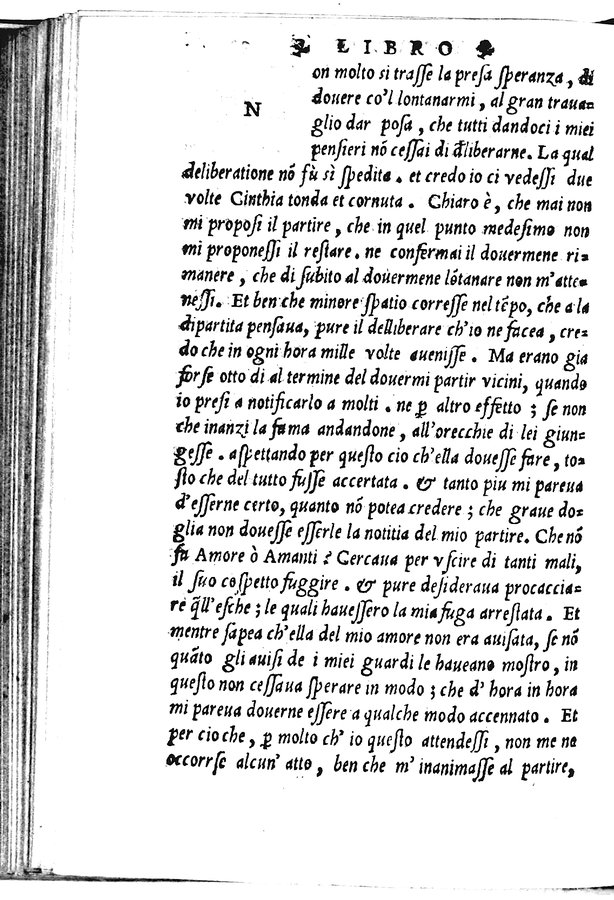 LIBRO
N
on molto si trasſe la preſa ſperanza, di
douere co'l lontanarmi, al gran traua=
glio dar poſa, che tutti dandoci i miei
penſieri nõ ceſſai di dliberarne. La qual
deliberatione nõ fù sì ſpedita. et credo io ci vedeſſi due
volte Cinthia tonda et cornuta. Chiaro è, che mai non
mi propoſi il partire, che in quel punto medeſimo non
mi proponeſſi il reſtare. ne confermai il douermene ri=
manere, che di ſubito al douermene lõtanare non m'atte=
neſſi. Et ben che minore ſpatio correſſe nel tẽpo, che a la
dipartita penſaua, pure il delliberare ch'io ne facea, cre=
do che in ogni hora mille volte aueniſſe. Ma erano gia
forſe otto di al termine del douermi partir vicini, quando
io preſi a notificarlo a molti. ne ꝑ altro effetto; ſe non
che inanzi la fama andandone, all'orecchie di lei giun=
geſſe. aſpettando per queſto cio ch'ella doueſſe fare, to=
ſto che del tutto fuſſe accertata. & tanto piu mi pareua
d'eſſerne certo, quanto nõ potea credere; che graue do=
glia non doueſſe eſſerle la notitia del mio partire. Che nõ
fa Amore ò Amanti? Cercaua per vſcire di tanti mali,
il ſuo coſpetto fuggire. & pure deſideraua procaccia=
re q̃ll'eſche; le quali haueſſero la mia fuga arreſtata. Et
mentre ſapea ch'ella del mio amore non era auiſata, ſe nõ
quãto gli auiſi de i miei guardi le haueano moſtro, in
queſto non ceſſaua ſperare in modo; che d'hora in hora
mi pareua douerne eſſere a qualche modo accennato. Et
per cio che, ꝑ molto ch'io queſto attendeſſi, non me ne
occorrſe alcun' atto, ben che m'inanimaſſe al partire,